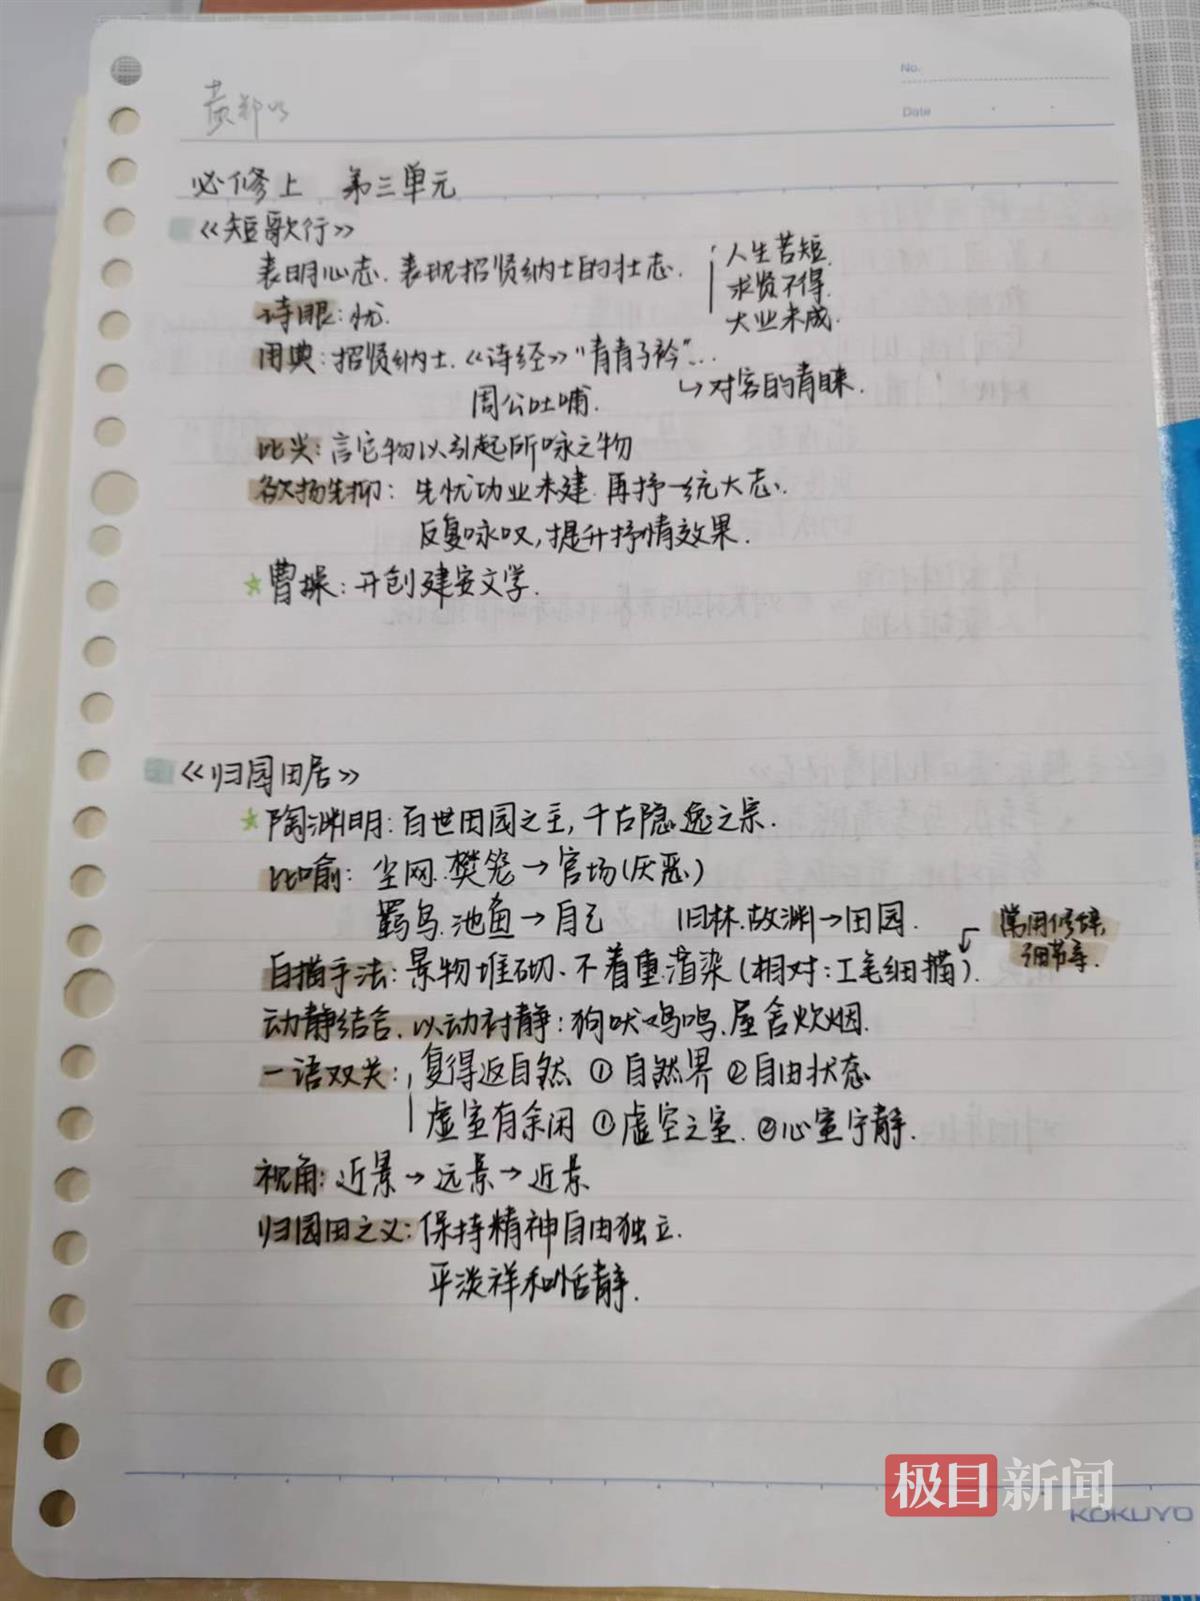 No.
Date
必修上 第三单元
《短歌行》
表明心志.表现招贤纳士的壮志. 人生苦短.
求贤不得.
大业未成.
诗眼:忧.
用典:招贤纳士.《诗经》"青青子衿"...
→对客的青睐.
周公吐哺.
比兴:言它物以引起所咏之物
欲扬先抑:先忧功业未建.再抒一统大志.
反复咏叹,提升抒情效果.
★曹操:开创建安文学.
《归园田居》
★陶渊明:百世田园之主,千古隐逸之宗.
比喻:尘网.樊笼→官场(厌恶)
羁鸟.池鱼→自己 旧林.故渊→田园.
常用修辞,
细节等.
白描手法:景物堆砌、不着重渲染(相对:工笔细描).
动静结合.以动衬静:狗吠鸡鸣.屋舍炊烟.
一语双关:复得返自然 ①自然界 ②自由状态
虚室有余闲 ①虚空之室.②心室宁静.
视角:近景→远景→近景
归园田之义:保持精神自由独立.
平淡祥和恬静.
极目新闻
KOKUYO